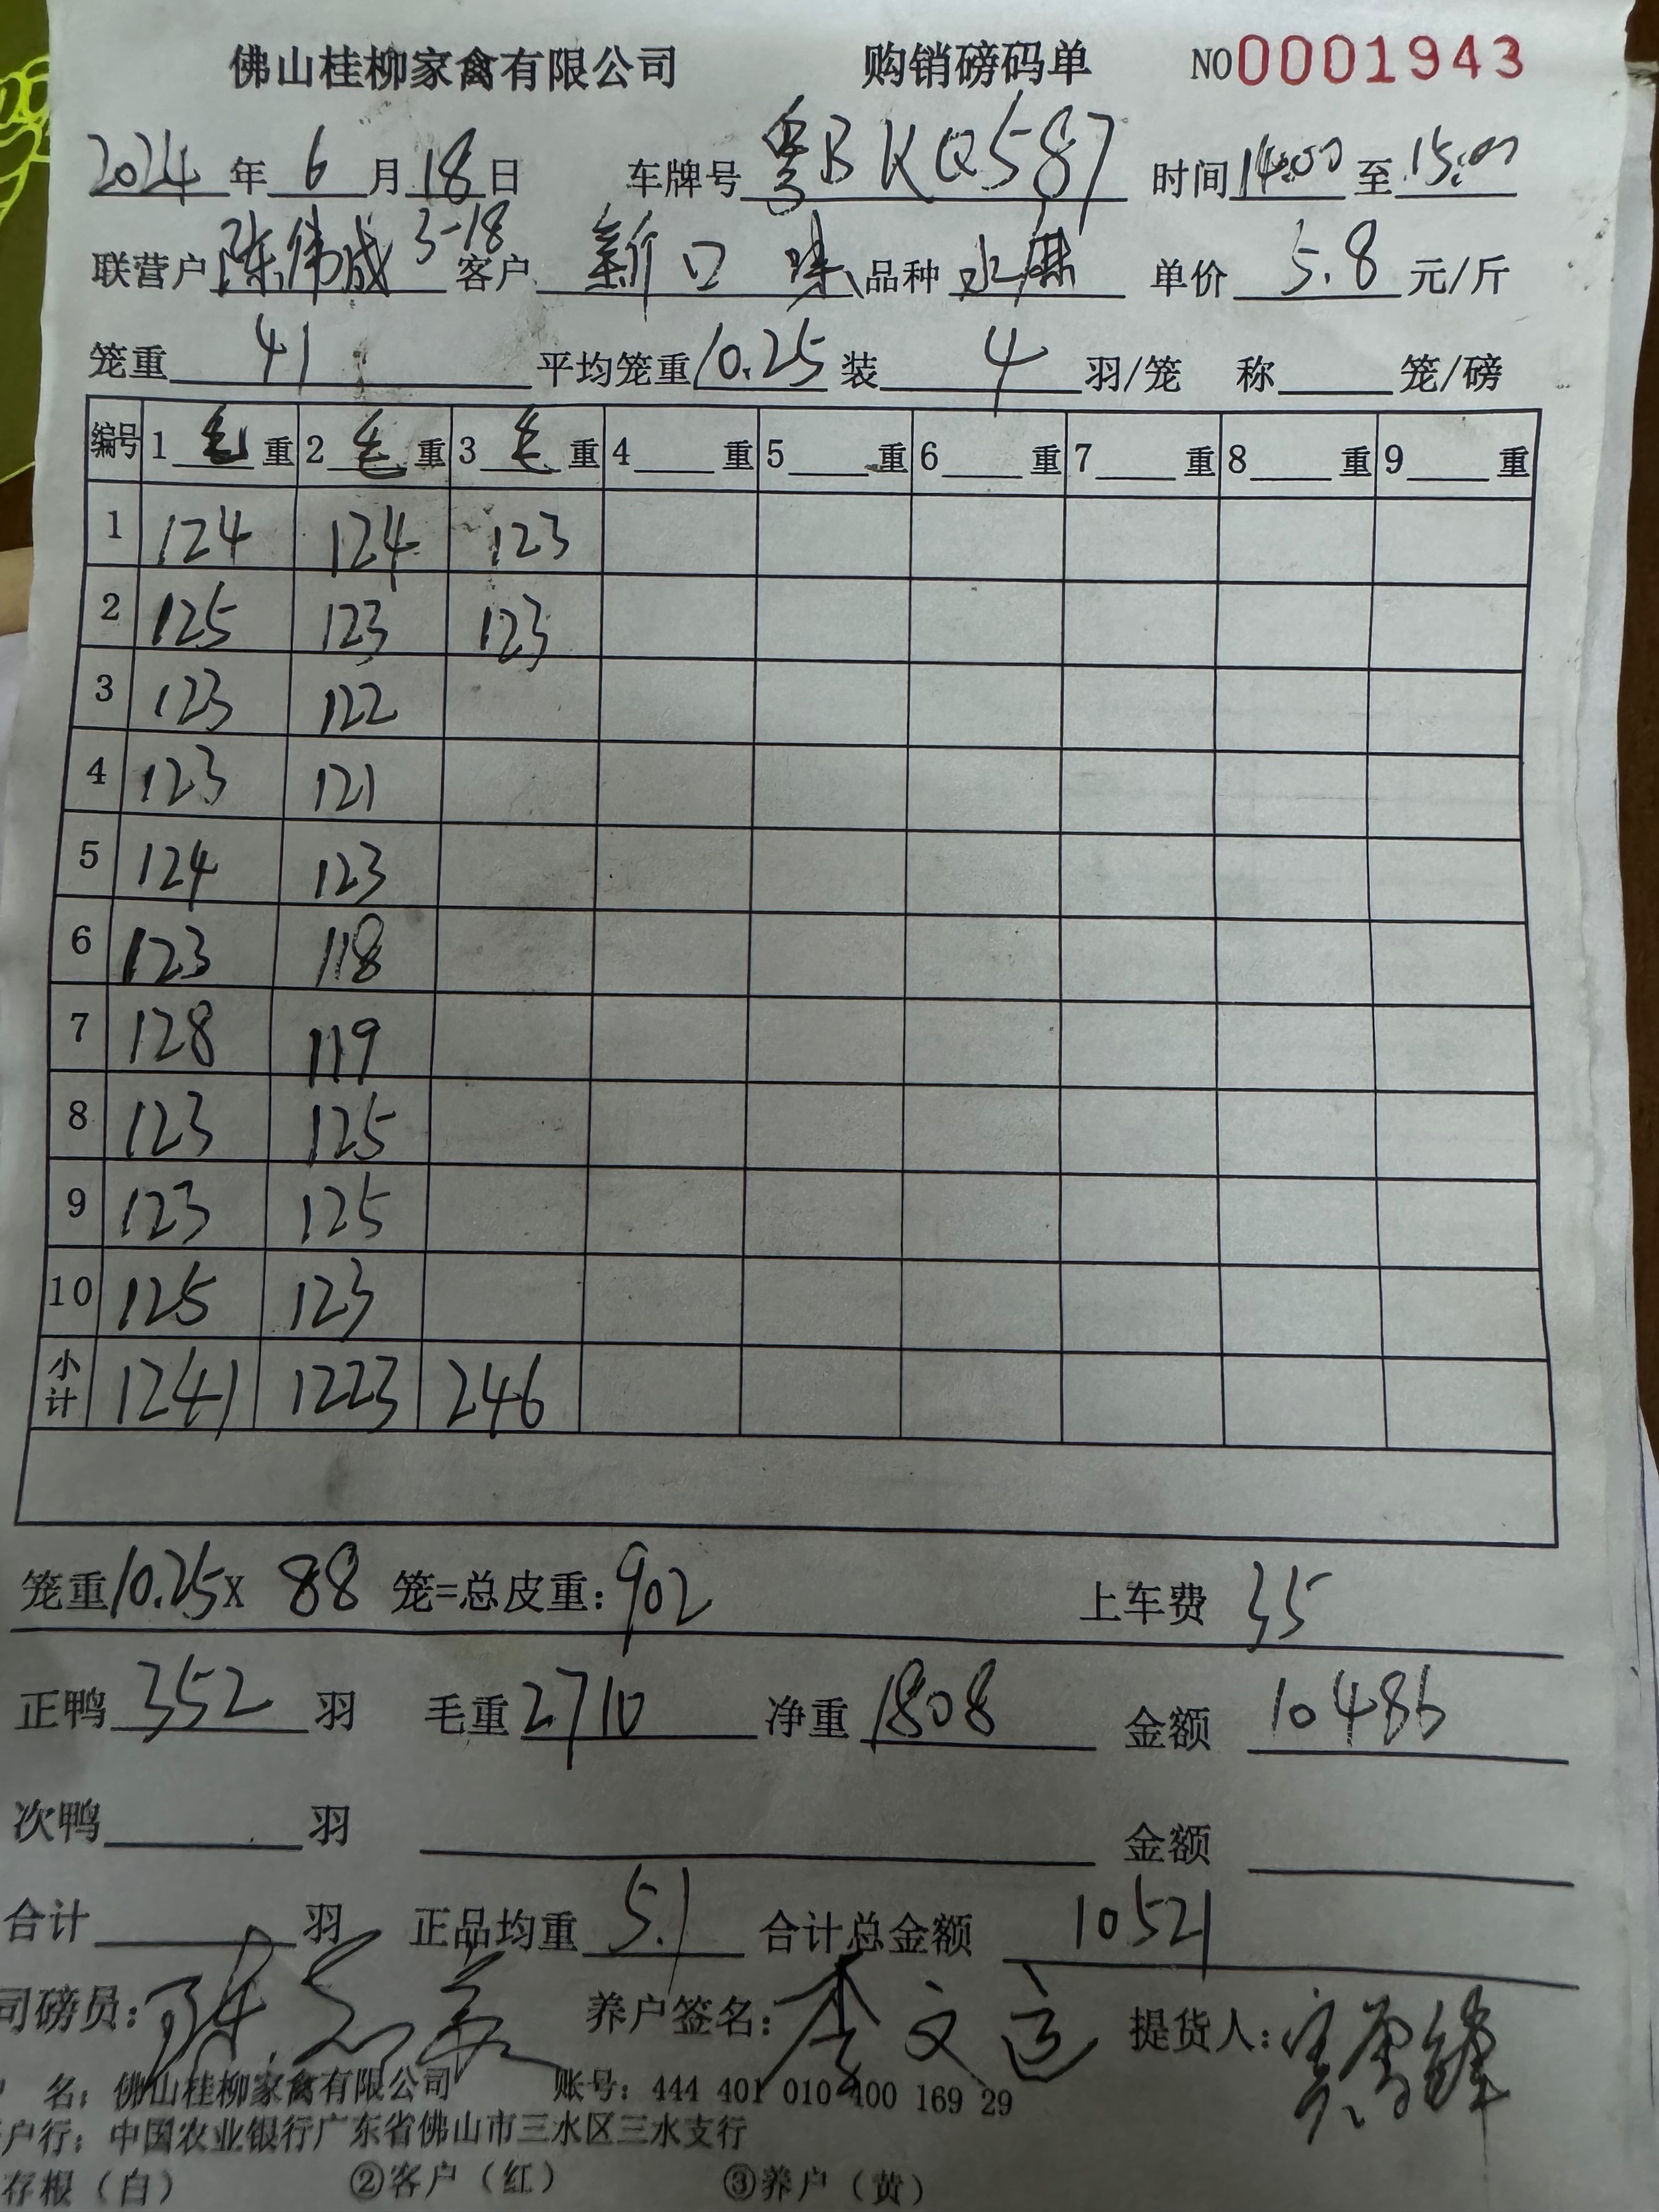 佛山桂柳家禽有限公司 购销磅码单 NO0001943
2024年6月18日 车牌号粤BKQ587 时间14:00至15:00
联营户陈伟成3-18 客户新口味 品种水麻 单价5.8元/斤
笼重41 平均笼重10.25 装4羽/笼 称 笼/磅
编号 1毛重 2毛重 3毛重 4 重 5 重 6 重 7 重 8 重 9 重
1 124 124 123
2 125 123 123
3 123 122
4 123 121
5 124 123
6 123 118
7 128 119
8 123 125
9 123 125
10 125 123
小计 1241 1223 246
笼重10.25X 88 笼=总皮重:902 上车费 35
正鸭352羽 毛重2710 净重1808 金额10486
次鸭 羽 金额
合计 羽 正品均重5.1 合计总金额10521
司磅员: 养户签名:李文运 提货人:
名:佛山桂柳家禽有限公司 账号:444 401 010 400 169 29
户行:中国农业银行广东省佛山市三水区三水支行
存根(白) ②客户(红) ③养户(黄)